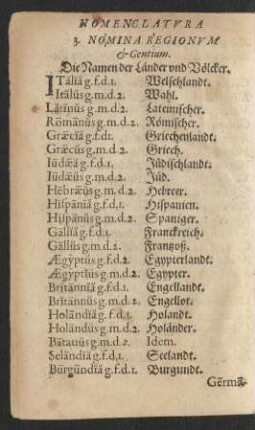 NOMENCLATVRA
3. NOMINA REGIONVM
& Gentium.
Die Namen der Länder vnd Völcker.
ITālĭă g.f.d.1. Welschlandt.
Itălŭs g.m.d.2. Wahl.
Lătīnŭs g.m.d.2. Lateinischer.
Rōmānŭs g.m.d.2. Römischer.
Græcĭă g.f.d.1. Griechenlandt.
Græcŭs g.m.d.2. Griech.
Iūdæă g.f.d.1. Jüdischlandt.
Iūdæŭs g.m.d.2. Jüd.
Hĕbræŭs g.m.d.2. Hebreer.
Hĭspānĭă g.f.d.1. Hispanien.
Hĭspānŭs g.m.d.2. Spanger.
Gallĭă g.f.d.1. Franckreich.
Gallŭs g.m.d.2. Frantzoß.
Ægyptŭs g.f.d.2. Egypterlandt.
Ægyptĭŭs g.m.d.2. Egypter.
Brĭtannĭă g.f.d.1. Engellandt.
Brĭtannŭs g.m.d.2. Engellot.
Hōlandĭă g.f.d.1. Holandt.
Hōlandŭs g.m.d.2. Holänder.
Bătavŭs g.m.d.2. Idem.
Sēlandĭă g.f.d.1. Seelandt.
Burgundĭă g.f.d.1. Burgundt.
Gērmā-